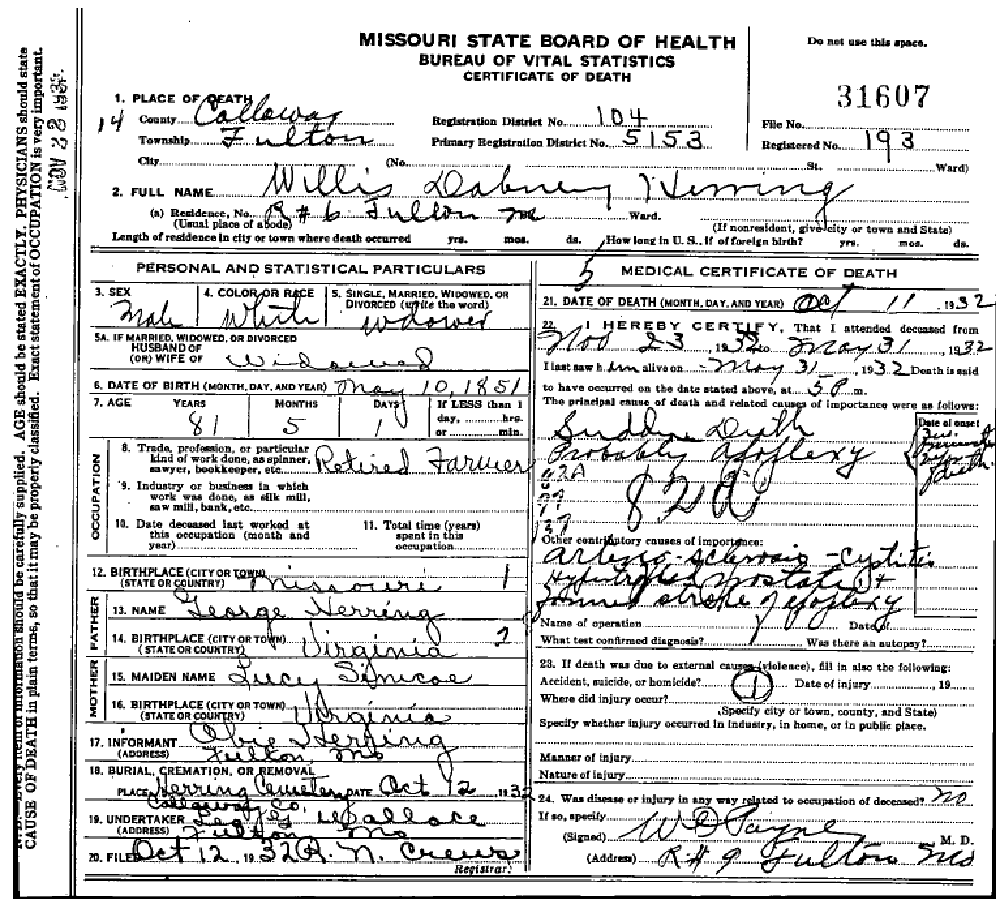 MISSOURI STATE BOARD OF HEALTH
BUREAU OF VITAL STATISTICS
CERTIFICATE OF DEATH
Do not use this space.
31607
1. PLACE OF DEATH
14 County Callaway Registration District No. 104 File No.
Township Fulton Primary Registration District No. 5153 Registered No. 193
City (No. St. Ward)
2. FULL NAME Willis Dabney Herring
(a) Residence, No. R # 6 Fulton Mo Ward.
(Usual place of abode) (If nonresident, give city or town and State)
Length of residence in city or town where death occurred yrs. mos. ds. How long in U. S., if of foreign birth? yrs. mos. ds.
PERSONAL AND STATISTICAL PARTICULARS
3. SEX Male
4. COLOR OR RACE White
5. SINGLE, MARRIED, WIDOWED, OR DIVORCED (write the word) widower
5A. IF MARRIED, WIDOWED, OR DIVORCED
HUSBAND OF
(OR) WIFE OF Widowed
6. DATE OF BIRTH (MONTH, DAY, AND YEAR) May 10, 1851
7. AGE YEARS MONTHS DAYS If LESS than 1
day, hrs.
or min.
81 5 1
OCCUPATION
8. Trade, profession, or particular
kind of work done, as spinner,
sawyer, bookkeeper, etc. Retired Farmer
9. Industry or business in which
work was done, as silk mill,
saw mill, bank, etc.
10. Date deceased last worked at
this occupation (month and
year)
11. Total time (years)
spent in this
occupation
12. BIRTHPLACE (CITY OR TOWN)
(STATE OR COUNTRY) Missouri 1
FATHER
13. NAME George Herring
14. BIRTHPLACE (CITY OR TOWN)
(STATE OR COUNTRY) Virginia
MOTHER
15. MAIDEN NAME Lucy Simcoe
16. BIRTHPLACE (CITY OR TOWN)
(STATE OR COUNTRY) Virginia
17. INFORMANT Obie Herring
(ADDRESS) Fulton Mo
18. BURIAL, CREMATION, OR REMOVAL
PLACE Herring Cemetery DATE Oct 12, 1932
Callaway Co,
19. UNDERTAKER Wallace
(ADDRESS) Fulton Mo
20. FILED Oct 12, 1932 R. N. Crews
Registrar.
5 MEDICAL CERTIFICATE OF DEATH
21. DATE OF DEATH (MONTH, DAY, AND YEAR) Oct 11, 1932
22. I HEREBY CERTIFY, That I attended deceased from
Nov 23 1932 to May 31, 1932
I last saw him alive on May 31, 1932 Death is said
to have occurred on the date stated above, at 5 P. m.
The principal cause of death and related causes of importance were as follows:
Date of onset
Sudden Death
Probably Apoplexy
82A
Other contributory causes of importance:
Arterio-sclerosis - Cystitis
Hypertrophied Prostate +
former stroke of apoplexy
Name of operation Date of
What test confirmed diagnosis? Was there an autopsy?
23. If death was due to external causes (violence), fill in also the following:
Accident, suicide, or homicide? Date of injury , 19
1
Where did injury occur?
(Specify city or town, county, and State)
Specify whether injury occurred in industry, in home, or in public place.
Manner of injury
Nature of injury
24. Was disease or injury in any way related to occupation of deceased? no
If so, specify
(Signed) W D Payne M. D.
(Address) R # 9 Fulton Mo
Every item of information should be carefully supplied. AGE should be stated EXACTLY. PHYSICIANS should state
CAUSE OF DEATH in plain terms, so that it may be properly classified. Exact statement of OCCUPATION is very important.
NOV 22 1932